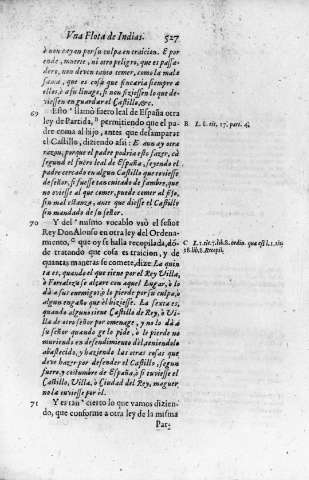 Vna Flota de Indias. 527
ò non cayan por su culpa en traicion. E por
ende, muerte, ni otro peligro, que es passa-
dero, non deven tanto temer, como la mala
fama, que es cosa que fincaria siempre a
ellos, ò a su linage, si non fiziessen lo que de-
viessen en guardar el Castillo, &c.
69 Esto llamò fuero leal de España otra
ley de Partida, B permitiendo que el pa-
dre coma al hijo, antes que desamparar
el Castillo, diziendo assi: E aun ay otra
razon, porque el padre podria esto fazer, cà
segund el fuero leal de España, seyendo el
padre cercado en algun Castillo que toviesse
de señor, si fuesse tan cuitado de fambre, que
no oviesse al que comer, puede comer al fijo,
sin mal estança, ante que diesse el Castillo
sin mandado de su señor.
B L. 8. tit. 17. part. 4.
70 Y del mismo vocablo vsò el señor
Rey Don Alonso en otra ley del Ordena-
mento, C que oy se halla recopilada, dò-
de tratando que cosa es traicion, y de
quantas maneras se comete, dize: La quin
ta es, quando el que tiene por el Rey Villa,
ò Fortaleza se alçare con aquel Lugar, ò lo
dà a sus enemigos: ò lo pierde por su culpa, ò
algun engaño que èl hiziesse. La sexta es,
quando alguno tiene Castillo de Rey, ò Vi-
lla de otro señor por omenage, y no lo dà à
su señor quando ge lo pide, ò lo pierde no
muriendo en defendimiento dèl, teniendolo
abastecido, y haziendo las otras cosas que
deve hazer por defender el Castillo, segun
fuero, y costumbre de España, ò si tuviesse el
Castillo, Villa, ò Ciudad del Rey, maguer
no la tuviesse por èl.
C L. 5. tit. 7. lib. 8. ordin. que est l. 1. tit.
18. lib. 8. Recopil.
71 Y es tan cierto lo que vamos dizien-
do, que conforme a otra ley de la misma
Par-